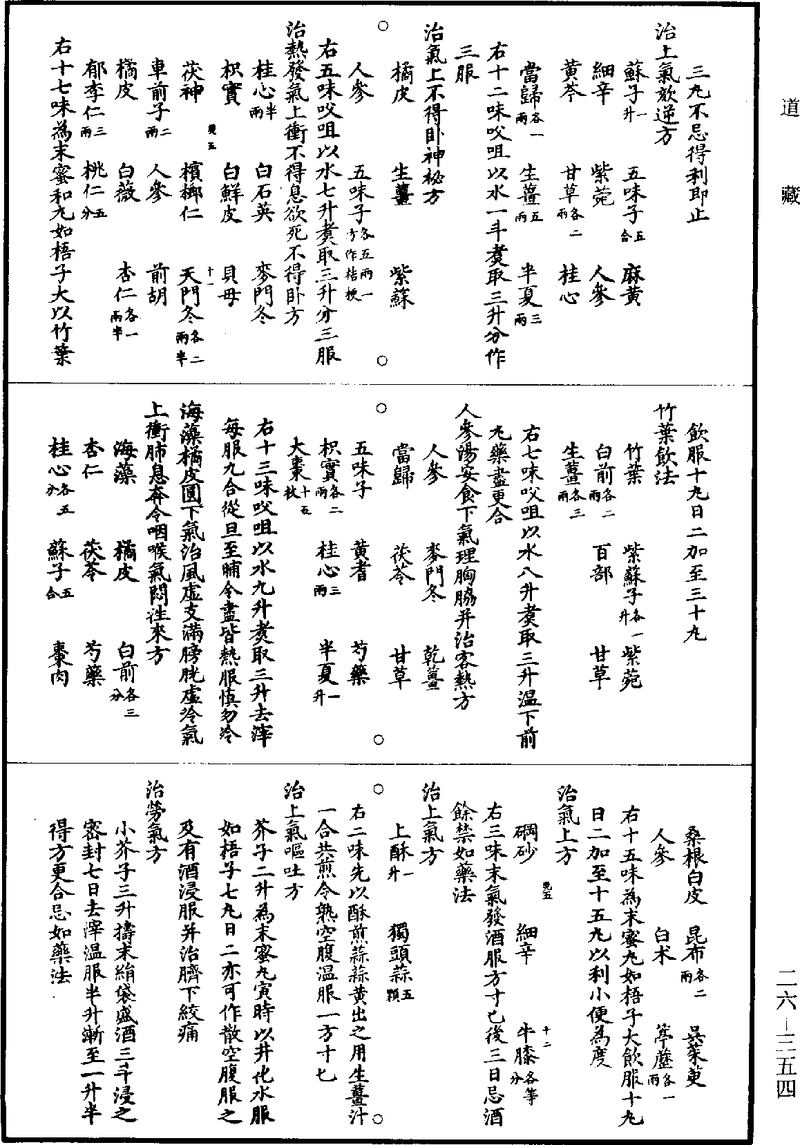 道藏
三丸不忌得利即止
治上氣欬逆方
蘇子一升 五味子五合 麻黃
細辛 紫菀 人參
黃芩 甘草各二兩 桂心
當歸各一兩 生薑五兩 半夏三兩
右十二味㕮咀以水一斗煑取三升分作
三服
治氣上不得卧神秘方
橘皮 生薑 紫蘇
人參 五味子各五兩一方作桔梗
右五味㕮咀以水七升煑取三升分三服
治熱發氣上衝不得息欲死不得卧方
桂心半兩 白石英 麥門冬
枳實 白鮮皮 貝母
茯神 檳榔仁 天門冬各二兩半
車前子二兩 人參 前胡
橘皮 白薇 杏仁各一兩半
郁李仁三兩 桃仁五分
右十七味為末蜜和丸如梧子大以竹葉
兢五
十一
飲服十丸日二加至三十丸
竹葉飲法
竹葉 紫蘇子各一升 紫菀
白前各二兩 百部 甘草
生薑各三兩
右七味㕮咀以水八升煑取三升温下前
丸藥盡更合
人參湯安食下氣理胸脇并治客熱方
人參 麥門冬 乾薑
當歸 茯苓 甘草
五味子 黃耆 芍藥
枳實各二兩 桂心三兩 半夏一升
大棗十五枚
右十三味㕮咀以水九升煑取三升去滓
每服九合從旦至晡令盡皆熱服慎勿冷
海藻橘皮圓下氣治風虛支滿膀胱虛冷氣
上衝肺息奔令咽喉氣悶往來方
海藻 橘皮 白前各三分
杏仁 茯苓 芍藥
桂心各五分 蘇子五合 棗肉
桑根白皮 昆布各二兩 吳茱萸
人參 白朮 葶藶各一兩
右十五味為末蜜丸如梧子大飲服十丸
日二加至十五丸以利小便為度
治氣上方
硇砂 細辛 牛膝各等分
兢五
十二
右三味末氣發酒服方寸匕後三日忌酒
餘禁如藥法
治上氣方
上酥一升 獨頭蒜五顆
右二味先以酥煎蒜蒜黃出之用生薑汁
一合共煎令熟空腹温服一方寸七
治上氣嘔吐方
芥子二升為末蜜丸寅時以井化水服
如梧子七丸日二亦可作散空腹服之
及有酒浸服并治臍下絞痛
治勞氣方
小芥子三升擣末絹袋盛酒三斗浸之
密封七日去滓温服半升漸至一升半
得方更合忌如藥法
二六—三五四